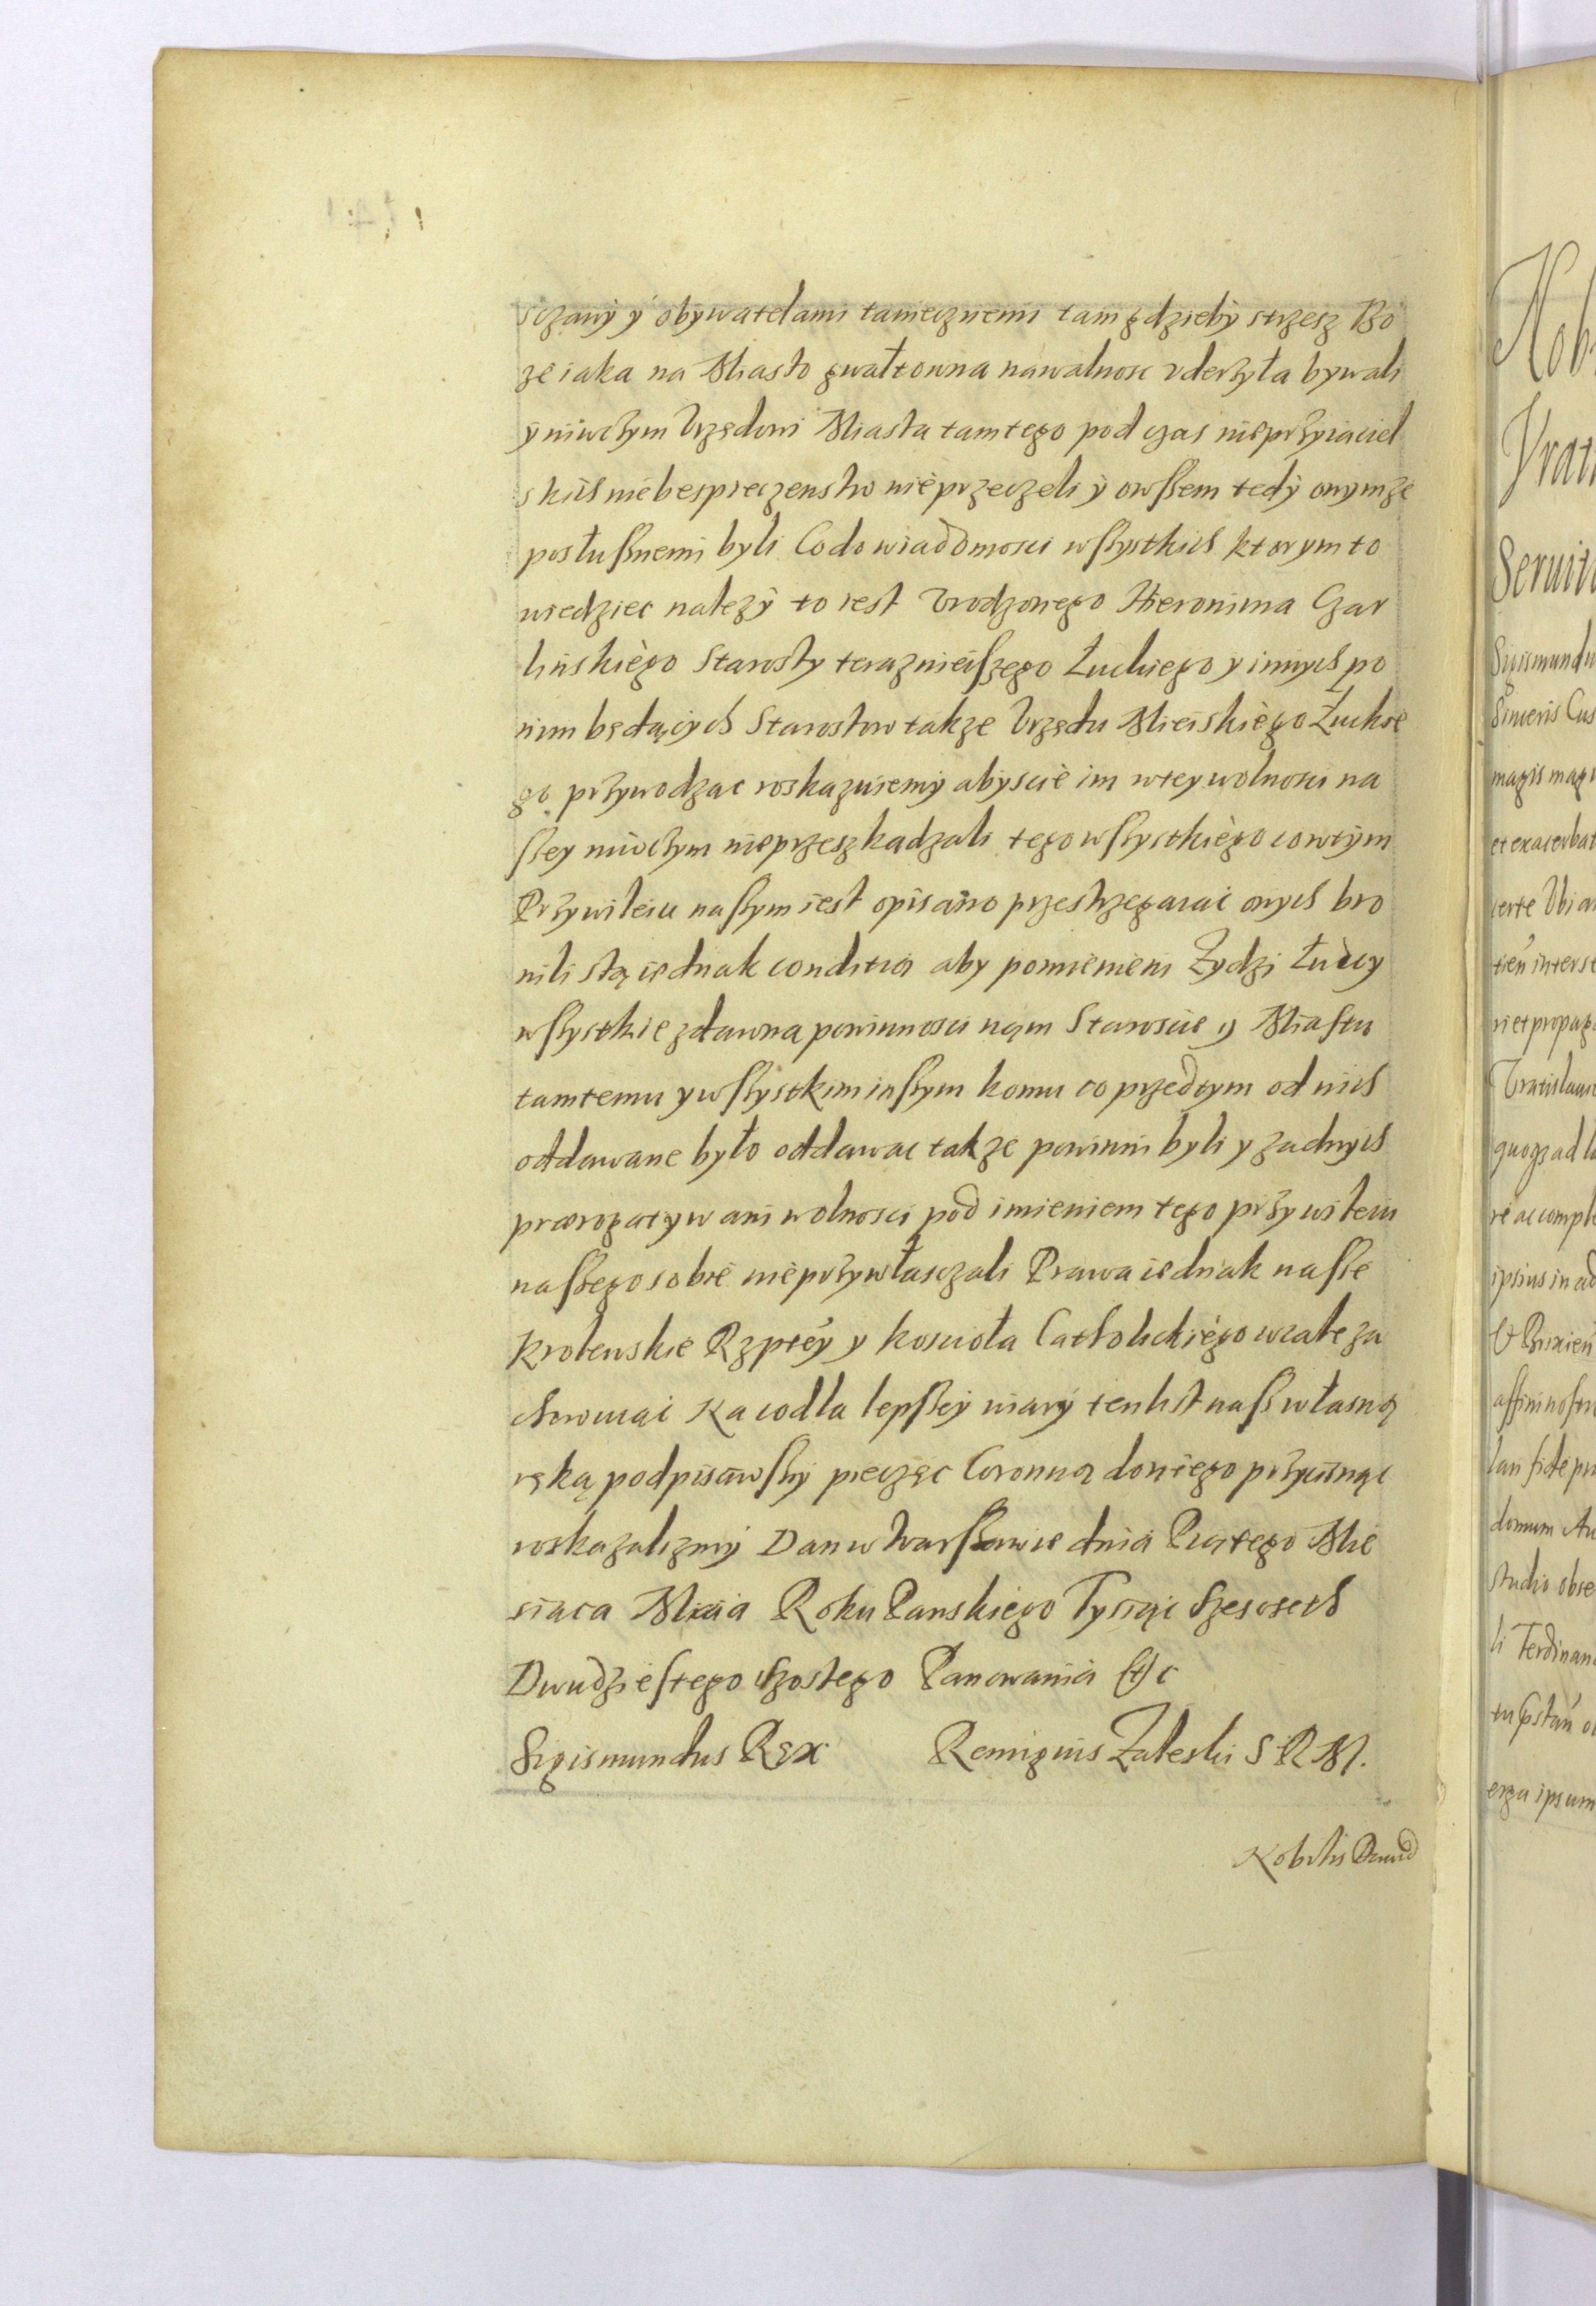 sczany y obywatelami tamecznemi tam gdzieby strzesz Bo
ze iaka na Miasto gwałtowna nawalnosc vderzyła bywali
y niwczym Vrzędowi Miasta tamtego pod czas nieprzyiaciel
skich niebespieczenstw nieprzeczeli y owssem tedy onymze
posłussnemi byli Co do wiadomosci wssystkich ktorym to
wiedziec nalezy to iest Vrodzonego Hieronima Char
linskiego Starosty teraznieisszego Łuckiego y innych po
nim będących Starostow takze Vrzędu Mieiskiego Łuckie
go przywodząc roskazuiemy abyscie im wtey wolnosci na
ssey niwczym nieprzeszkadzali tego wssystkiego co wtym
Przywileiu nassym iest opisano przestrzegaiąc onych bro
nili stą iednak conditią aby pomienieni Zydzi Łuccy
wssystkie zdawna powinnosci nąm Staroscie y Miastu
tamtemu y wssystkim inssym komu co przedtym od nich
oddawane było oddawac takze powinni byli y zadnych
prærogatyw ani wolnosci pod imieniem tego przywileiu
nassego sobie nieprzywłasczali Prawa iednak nasse
Krolewskie Rzptey y kosciola Catholickiego wcale za
chowuiąc Na co dla lepssey wiary ten list nass własną
ręką podpisawssy pieczęc Coronną do niego przycisnąc
roskazalizmy Dan w Warssawie dnia Piątego Mie
siąca Maia Roku Panskiego Tysiąc Szescseth
Dwudziestego Szostego Panowania etc
Sigismundus Rex Remigius Zaleski S R M.
Nobilis